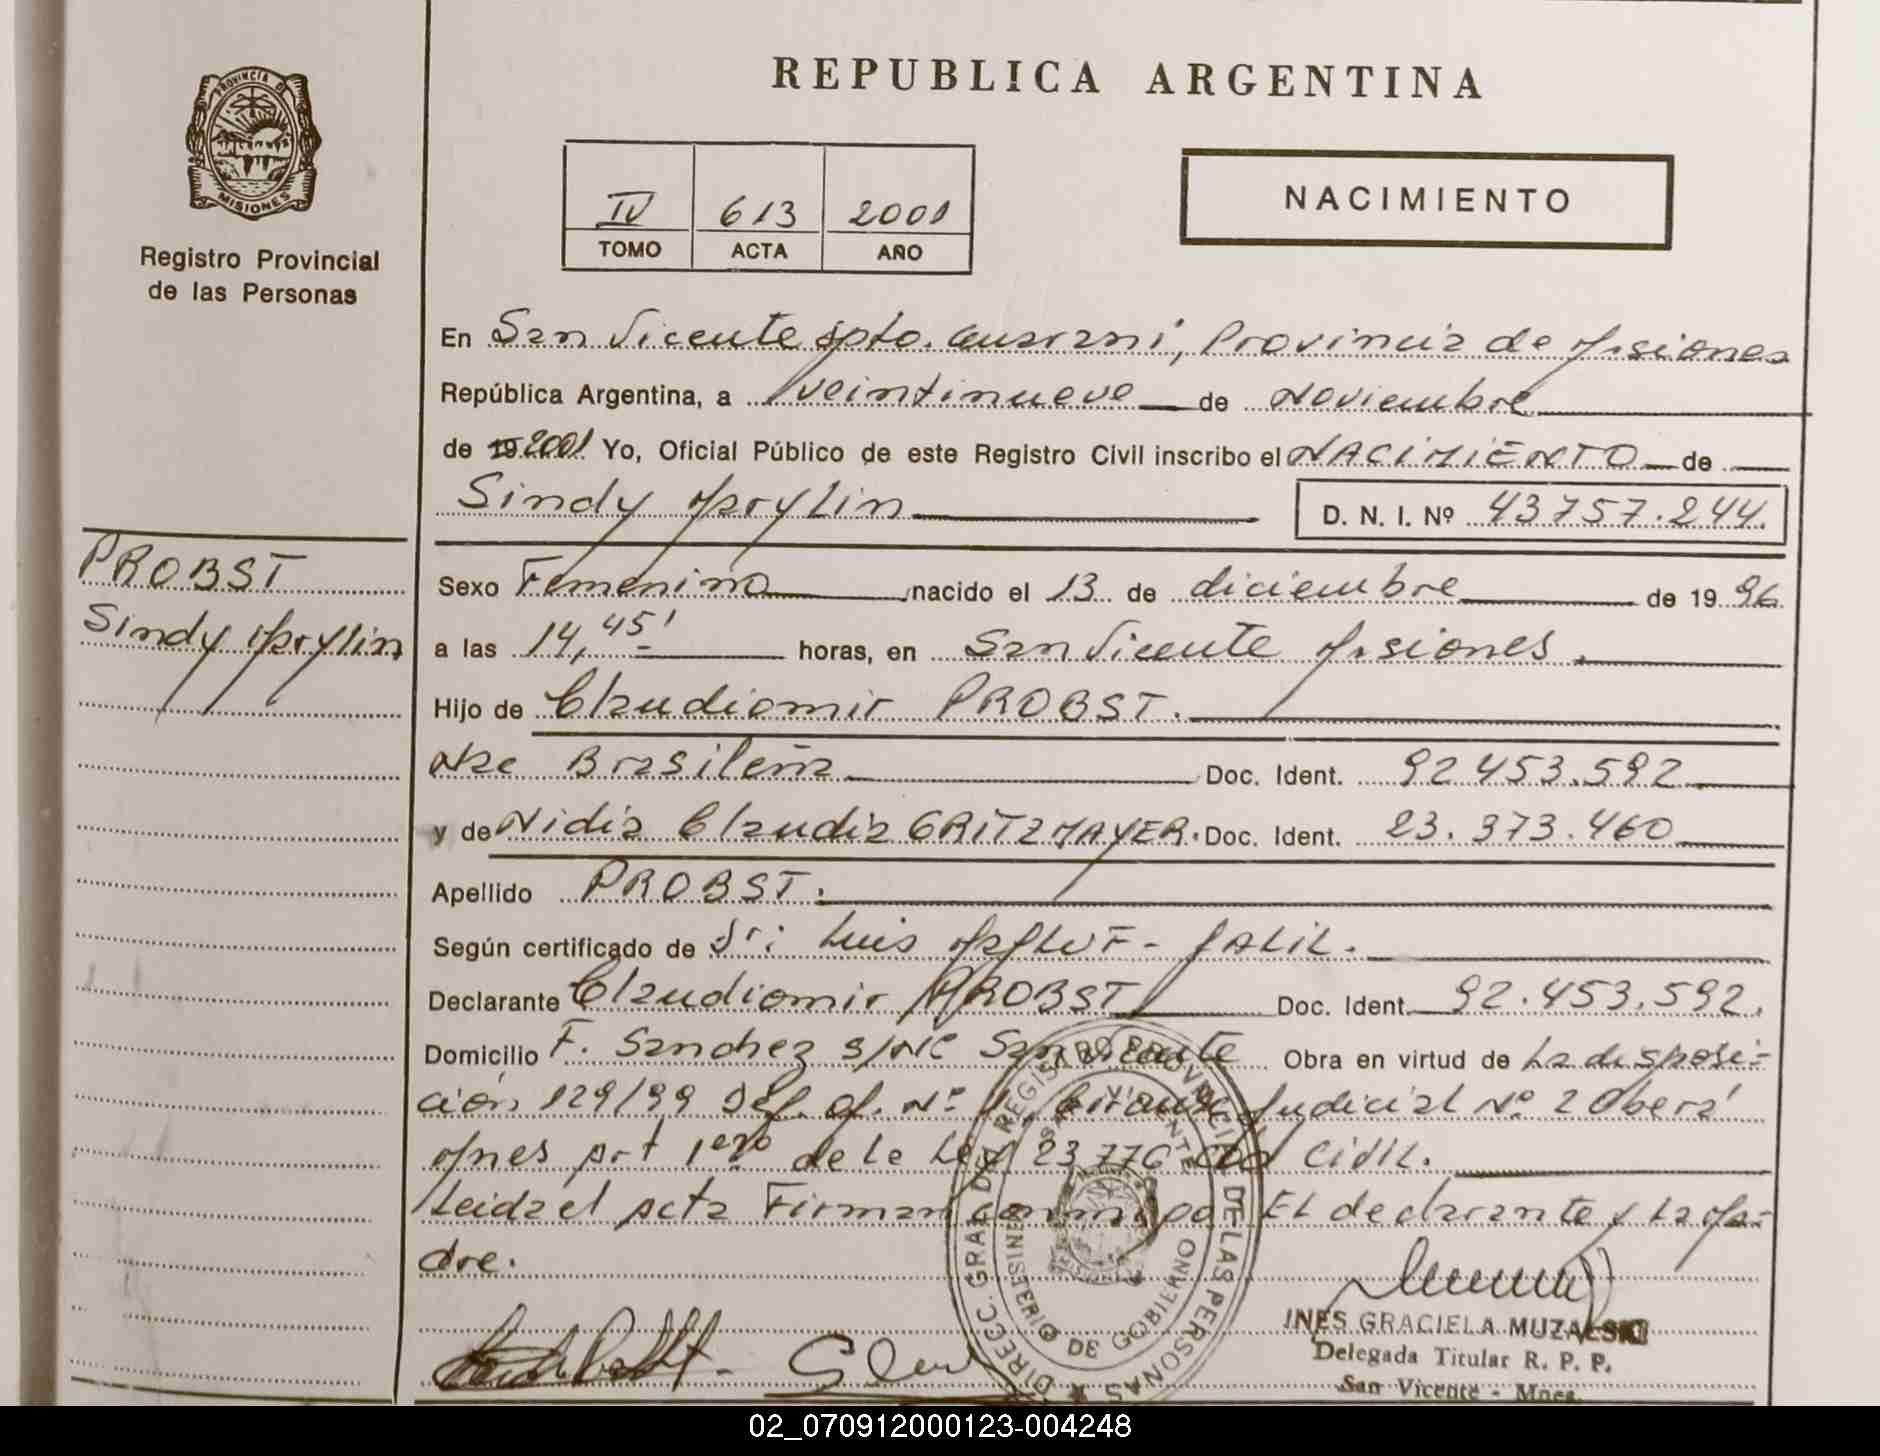 REPUBLICA ARGENTINA
PROVINCIA DE
MISIONES
Registro Provincial
de las Personas
IV 613 2001
TOMO ACTA AÑO
NACIMIENTO
En San Vicente Dpto. Guarani, Provincia de Misiones
República Argentina, a veintinueve de Noviembre
de 19 2001 Yo, Oficial Público de este Registro Civil inscribo el NACIMIENTO de
Sindy Marylin D. N. I. Nº 43757.244.
PROBST
Sindy Marylin
Sexo Femenino nacido el 13 de diciembre de 19 96
a las 14,45' horas, en San Vicente Misiones.
Hijo de Claudiomir PROBST.
Nac Brasileña Doc. Ident. 92453.592
y de Nidia Claudia GRITZMAYER. Doc. Ident. 23.373.460
Apellido PROBST.
Según certificado de Luis JALIL.
Declarante Claudiomir PROBST Doc. Ident. 92.453.592.
Domicilio F. Sanchez S/Nº San Vicente Obra en virtud de La disposi-
ción 129/99 Def. of. Nº 1 Judicial Nº 2 Oberá
Mnes art 1ero de la Ley 23776 Cod Civil.
Leida el acta Firman conmigo El declarante y La Ma-
dre.
DIRECC. GRAL. DEL REGISTRO PROVINCIAL DE LAS PERSONAS
SAN VICENTE
MINISTERIO DE GOBIERNO
INES GRACIELA MUZALSKI
Delegada Titular R. P. P.
San Vicente - Mnes.
02_070912000123-004248